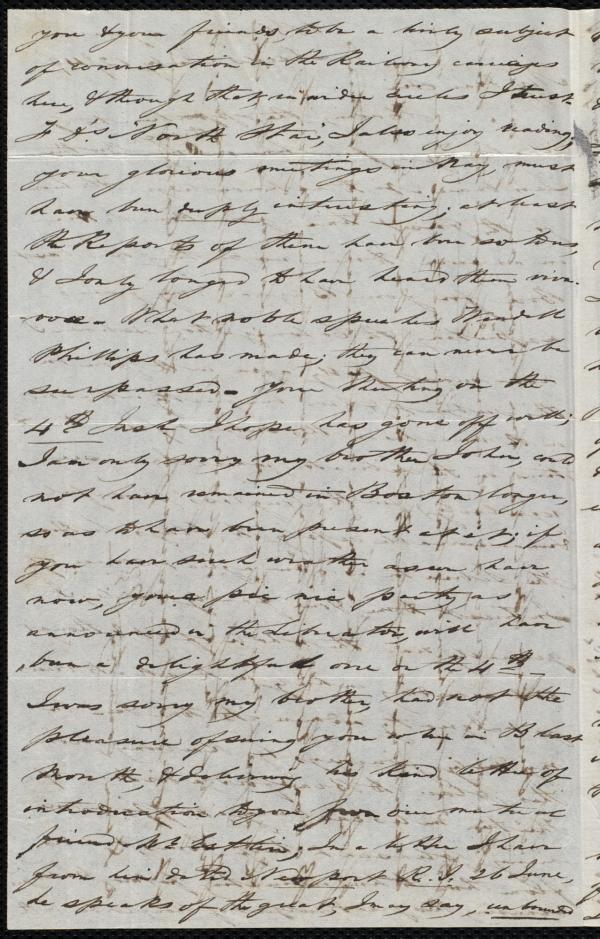 you & your friends, to be a lively subject
of conversation in the Railway carriages
here, & through that in wider circles I trust.
F. D's. North Star, I also enjoy reading,
your glorious meetings in May, must
have been deeply interesting, at least
the Reports of them have been so to us,
& I only longed to have heard them viva-
voce. What noble speeches Wendell
Phillips has made; they can never be
surpassed - your Meeting on the
4th Inst. I hope has gone off well;
I am only sorry my brother John, could
not have remained in Boston longer,
so as to have been present at it; if
you have such weather as we have
now, your pic nic party, as
announced in the Liberator, will have
been a delightful one on the 4th.
I was sorry my brother had not the
pleasure of seeing you when in B last
Month, & delivering his kind letter of
introduction to you from our mutual
friend Mr. Estlin; In a letter I have
from him dated Newport R.I. 26 June,
he speaks of the great, I may say, unbounded